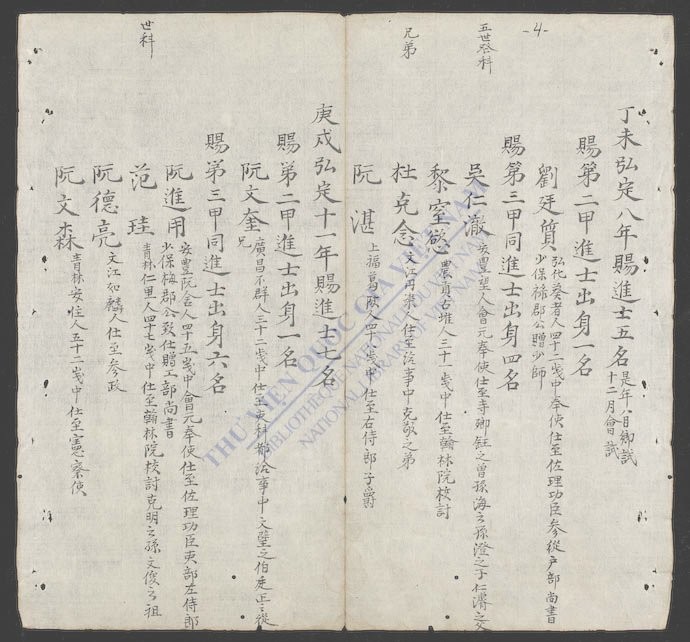 -4-
丁未弘定八年賜進士五名 是年八月鄉試
十二月會試
賜第二甲進士出身一名
劉廷質 弘化葵者人四十二歲中奉使仕至佐理功臣參從戶部尚書
少保祿郡公贈少師
賜第三甲同進士出身四名
五世登科
吳仁澈 安豊望人會元奉使仕至寺卿鈺之曾孫海之孫澄之子仁濬之父
黎室慾 農貢古堆人三十一歲中仕至翰林院校討
兄弟
杜克念 文江丹崇人仕至給事中克敬之弟
阮湛 上福人四十歲中仕至右侍郎子爵
庚戌弘定十一年賜進士七名
賜第二甲進士出身一名
阮文奎 廣昌不群人三十二歲中仕至吏科都給事中文璧之伯廷正之從
兄
賜第三甲同進士出身六名
阮進用 安豊阮舍人四十五歲中會元奉使仕至佐理功臣吏部左侍郎
少保梅郡公致仕贈工部尚書
世科
范珪 青林仁里人四十七歲中仕至翰林院校討克明之孫文俊之祖
阮德亮 文江如麟人仕至參政
阮文森 青林安住人五十二歲中仕至憲察使
THƯ VIỆN QUỐC GIA VIỆT NAM
BIBLIOTHÈQUE NATIONALE DU VIETNAM
NATIONAL LIBRARY OF VIETNAM